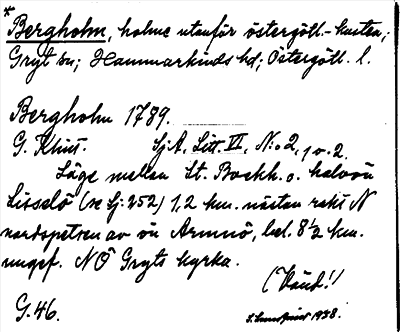 *
Bergholm, holme utanför östergötl.-kusten;
Gryt sn; Hammarkinds hd; Östergötl. l.
Bergholm 1789.
G. Klint. Sj.A. Litt. VI, N:o 2, 1 o. 2.
Läge mellan St. Bockh. o. halvön
Lisselö (se Sj: 252) 1,2 km. nästan rakt N
nordspetsen av ön Armnö, bel. 8½ km.
ungef. NÖ Gryts kyrka.
(Vänt!)
G. 46. 1938.